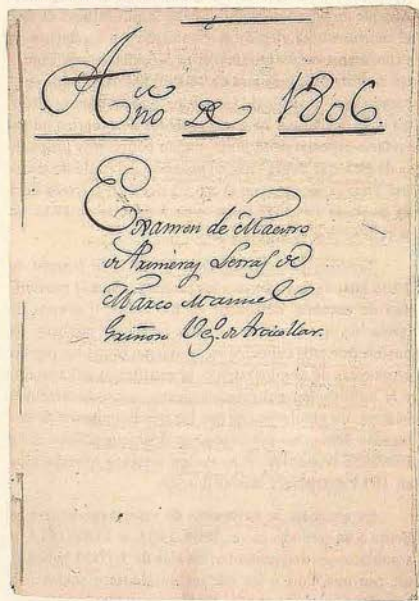 Año de 1806.
Examen de Maestro
de Primeras Letras de
Marco Manuel
Griñon Vegº. de Arcicollar.